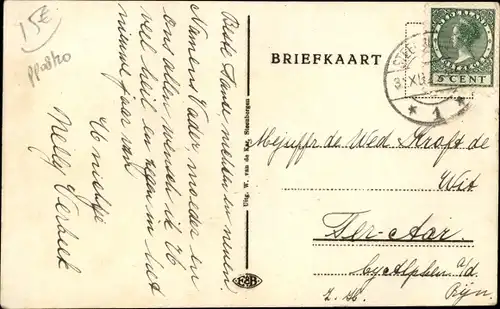 15€
ppa8120
Beste Tante, neven en nichten.
Namens Vader moeder en
ons allen wensch ik U
veel heil en zegen in het
nieuwe jaar van
Uw nichtje
Nelly Verbeek
Uitg. W. van de Kar, Steenbergen
F&B
BRIEFKAART
NEDERLAND
5 CENT
XII
* 1 *
Mejuffr de Wed. Kroft de
Wit
Ter-Aar.
by Alphen a/d
Rijn
Z. H.